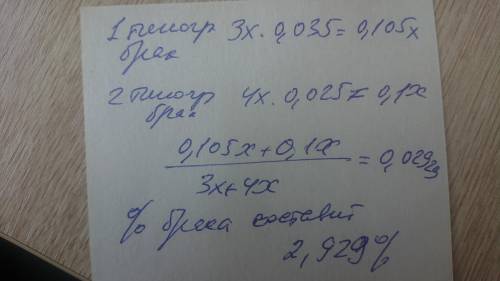 1 типогр 3x · 0,035 = 0,105x
брак
2 типогр 4x · 0,025 = 0,1x
брак
0,105x + 0,1x
3x + 4x
= 0,02929
% брака составит
2,929%